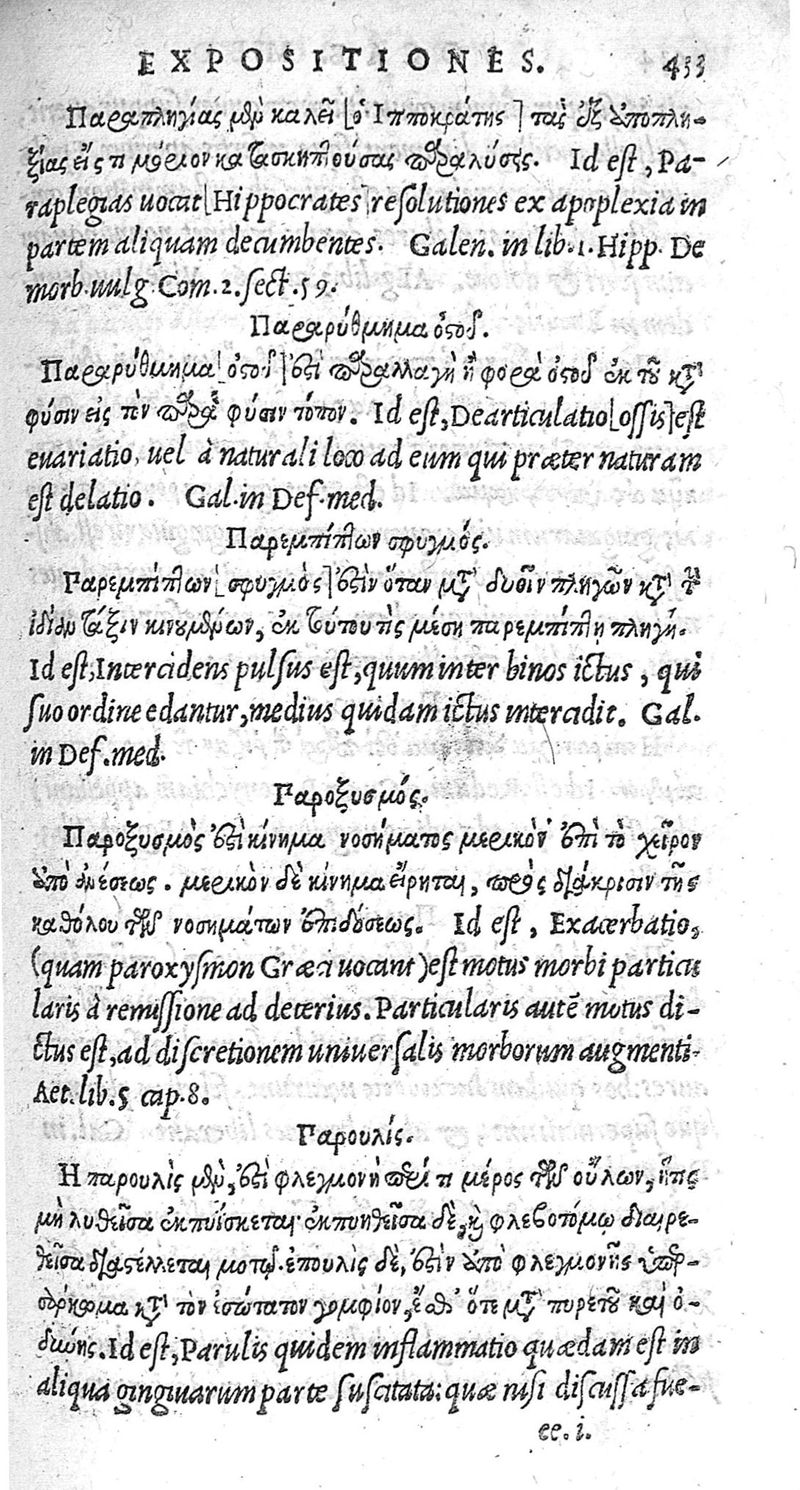 EXPOSITIONES. 433
Παραπληγίας μὲν καλεῖ [ὁ Ἱπποκράτης] τὰς ἐξ ἀποπλη-
ξίας εἴς τι μόριον κατασκηπτούσας παραλύσεις. Id est, Pa-
raplegias uocat [Hippocrates] resolutiones ex apoplexia in
partem aliquam decumbentes. Galen. in lib. 1. Hipp. De
morb. uulg. Com. 2. sect. 59.
Παραρύθμημα ὀστοῦ.
Παραρύθμημα [ὀστοῦ] ἐστὶ παραλλαγὴ ἢ φορὰ ὀστοῦ ἐκ τοῦ κατὰ
φύσιν εἰς τὸν παρὰ φύσιν τόπον. Id est, Dearticulatio [ossis] est
euariatio, uel à naturali loco ad eum qui præter naturam
est delatio. Gal. in Def. med.
Παρεμπίπτων σφυγμός.
Παρεμπίπτων [σφυγμὸς] ἐστὶν ὅταν μετὰ δυοῖν πληγῶν κατὰ τὴν
ἰδίαν τάξιν κινουμένων, ἐκ τούτου τὶς μέση παρεμπίπτῃ πληγή.
Id est, Intercidens pulsus est, quum inter binos ictus, qui
suo ordine edantur, medius quidam ictus intercidit. Gal.
in Def. med.
Παροξυσμός.
Παροξυσμὸς ἐστὶ κίνημα νοσήματος μερικὸν ἐπὶ τὸ χεῖρον
ἀπὸ ἀνέσεως. μερικὸν δὲ κίνημα εἴρηται, πρὸς διάκρισιν τῆς
καθόλου τῶν νοσημάτων ἐπιδόσεως. Id est, Exacerbatio,
(quam paroxysmon Græci uocant) est motus morbi particu
laris à remissione ad deterius. Particularis autē motus di-
ctus est, ad discretionem uniuersalis morborum augmenti.
Aet. lib. 5 cap. 8.
Παρουλίς.
Η παρουλὶς μὲν, ἐστὶ φλεγμονὴ περί τι μέρος τῶν οὔλων, ἥτις
μὴ λυθεῖσα ἐκπυΐσκεται· ἐκπυηθεῖσα δὲ, καὶ φλεβοτόμῳ διαιρε-
θεῖσα διαστέλλεται μοτῷ. ἐπουλὶς δὲ, ἐστὶν ἀπὸ φλεγμονῆς ὑπερ-
σάρκωμα κατὰ τὸν ἐσώτατον γομφίον, ἔσθ' ὅτε μετὰ πυρετοῦ καὶ ὀ-
δύνης. Id est, Parulis quidem inflammatio quædam est in
aliqua gingiuarum parte suscitata: quæ nisi discussa fue-
ee. i.